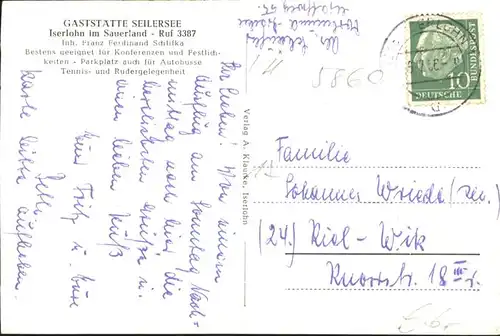 GASTSTATTE SEILERSEE
Iserlohn im Sauerland - Ruf 3387
Inh. Franz Ferdinand Schlifka
Bestens geeignet für Konferenzen und Festlich-
keiten - Parkplatz auch für Autobusse
Tennis- und Rudergelegenheit
Ihr Lieben! Von einem
Ausflug am Sonntag Nach-
mittag noch hier die
herzlichsten Grüße u.
einen lieben Kuß
Eure Fritz u. Eure
Karte bitte aufheben.
Verlag A. Klauke, Iserlohn
5890
DEUTSCHE
BUNDESPOST
10
Familie
Johannes Wrieda (sen.)
(24) Kiel - Wik
Knorrstr. 18 III r.